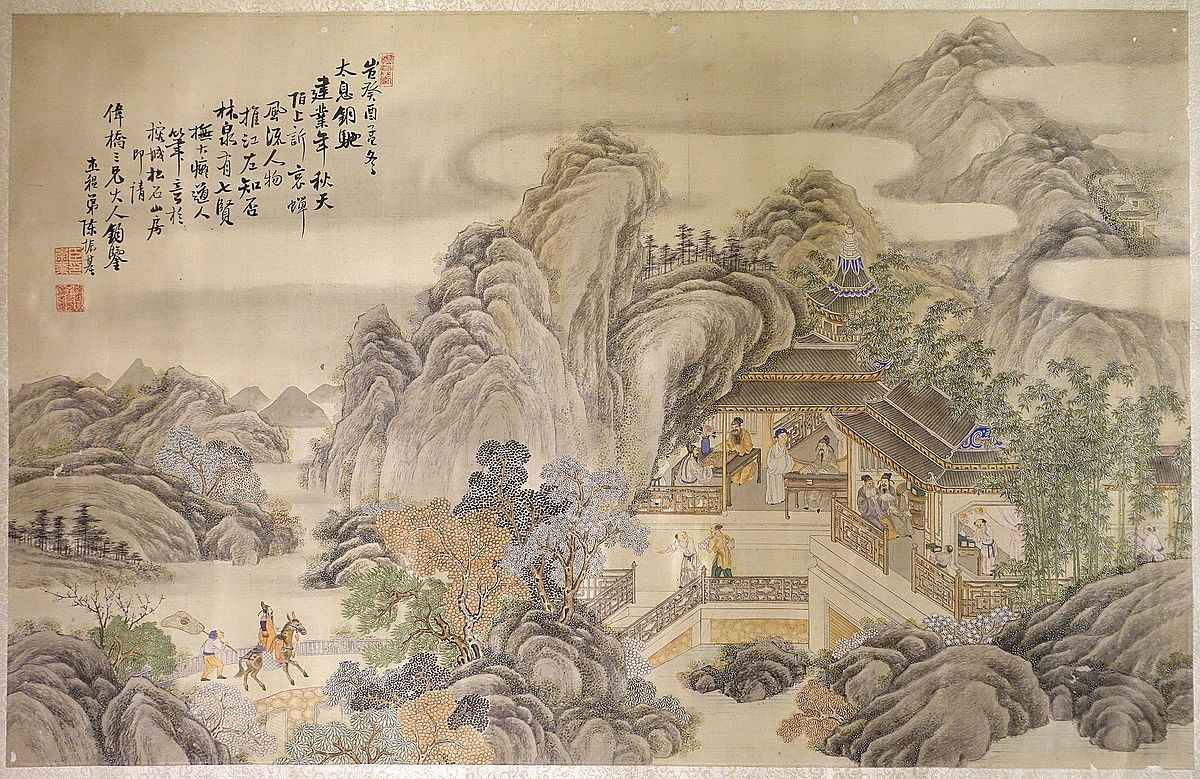 癸酉孟冬
太息銅馳
建業年秋天
陌上訴哀蟬
風流人物
推江左知否
林泉有七賢
橅大癡道人
筆意於
榕城松石山房
即請
偉橋三兄大人鈞鑒
弟陳振基